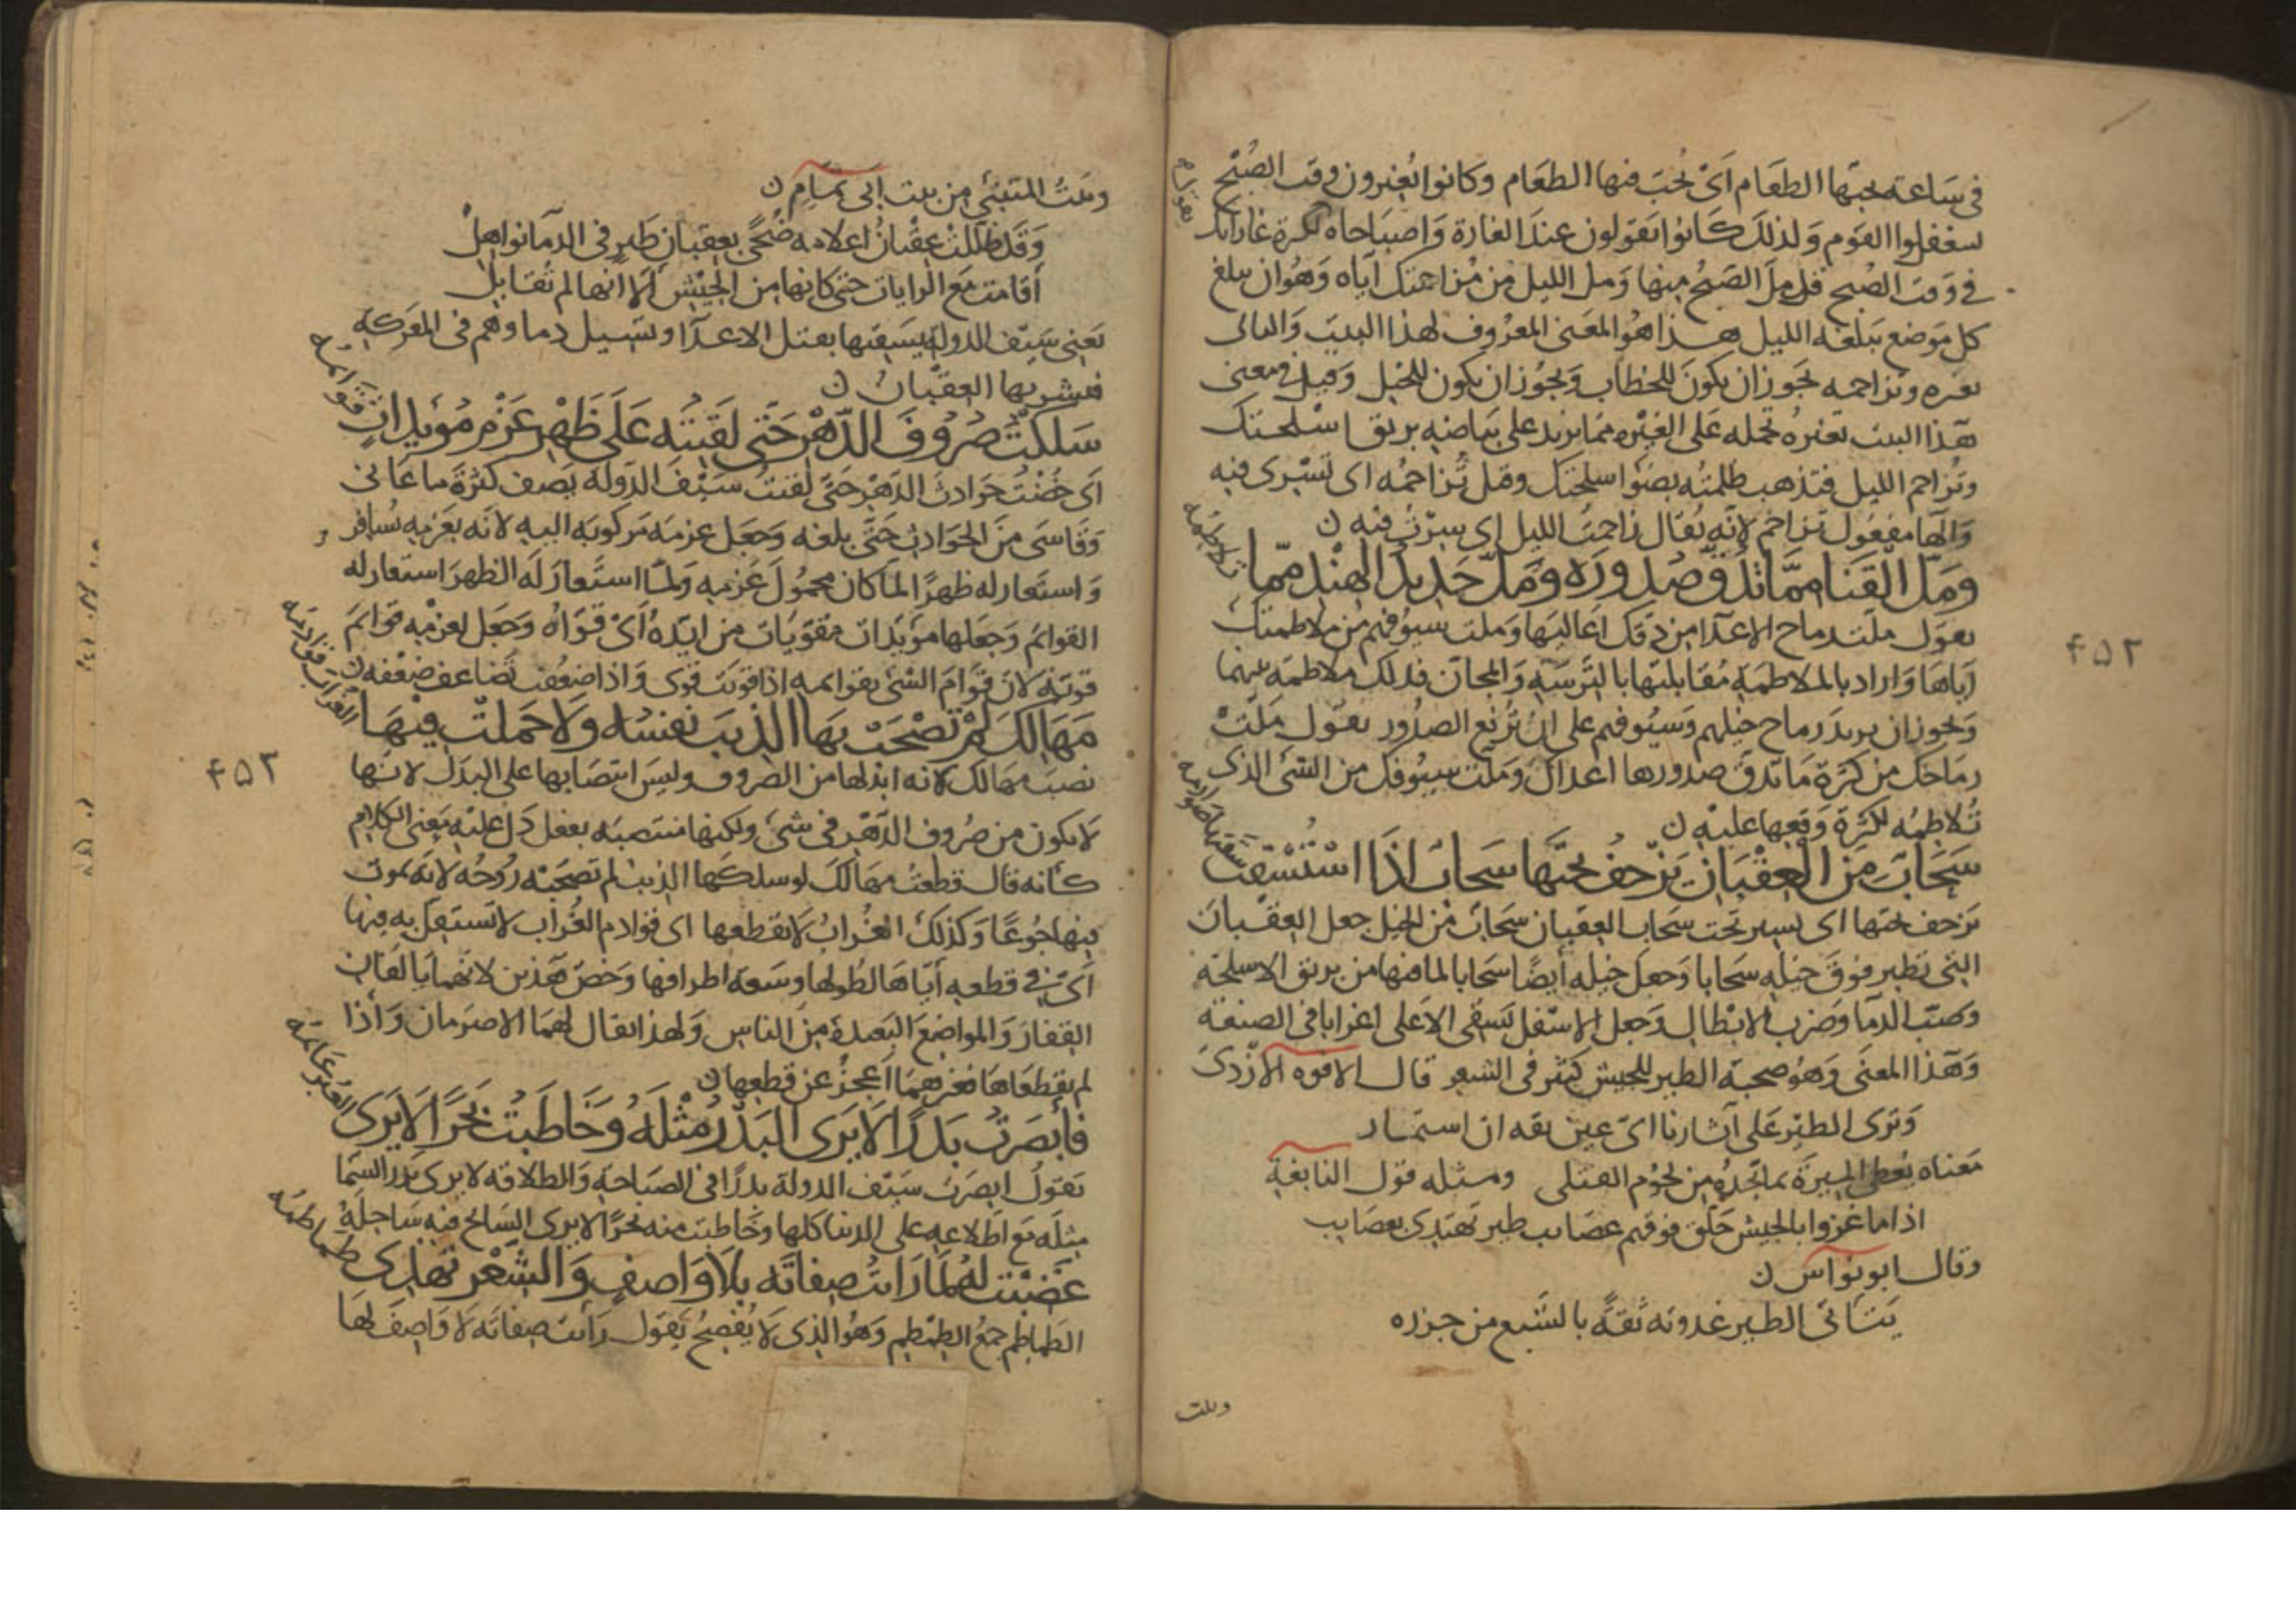 فى ساعة يحبها الطعام اى يحب فيها الطعام وكانوا يغيرون وقت الصبح
ليغفلوا القوم ولذلك كانوا يقولون عند الغارة واصباحاه لكثرة غاراتك
فى وقت الصبح قل مل الصبح منها ومل الليل من مزاحمتك اياه وهو ان يبلغ
كل موضع يبلغه الليل هذا هو المعنى المعروف لهذا البيت والتاء فى
تغيره وتزاحمه يجوز ان يكون للخطاب ويجوز ان يكون للخيل وقيل فى معنى
هذا البيت تغيره تحمله على الغيرة مما يزيد على بياضه بريق اسلحتك
وتزاحم الليل فتذهب ظلمته بضوء اسلحتك وقيل تزاحمه اى تسرى فيه
والهاء مفعول تزاحم لانه يقال زاحمت الليل اى سرت فيه ن
ومل القنا مما تدق صدوره ومل حديد الهند مما
تلاطمه
يقول ملت رماح الاعداء من دقك اعاليها وملت سيوفهم من ملاطمتك
اياها واراد بالملاطمة مقابلتها بالترسة والمجان فذلك ملاطمة بينهما
ويجوز ان يريد رماح خيلهم وسيوفهم على ان ترفع الصدور يقول ملت
رماحك من كثرة ما تدق صدورها اعداك وملت سيوفك من الشئ الذى
تلاطمه لكثرة وقعها عليه ن
سحاب من العقبان يزحف تحتها سحاب اذا استسقت
سقتها صوارمه
تزحف تحتها اى يسير تحت سحاب العقبان سحاب من الخيل جعل العقبان
التى تطير فوق خيله سحابا وجعل خيله ايضا سحابا لما فيها من بريق الاسلحة
وصب الدماء وضرب الابطال وجعل الاسفل يسقى الاعلى اغرابا فى الصنعة
وهذا المعنى وهو صحبة الطير للجيش كثير فى الشعر قال الافوه الازدى
وترى الطير على آثارنا اى عين ثقة ان استمار
معناه يعطى الميرة بما تجده من لحوم القتلى ومثله قول النابغة
اذا ما غزوا بالجيش حلق فوقهم عصائب طير تهتدى بعصائب
وقال ابو نواس ن
يتأتى الطير غدوته ثقة بالشبع من جزره
وبيت
٤٥٢
وبيت المتنبى من بيت ابى تمام ن
وقد ظللت عقبان اعلامه ضحى بعقبان طير فى الدماء نواهل
أقامت مع الرايات حتى كأنها من الجيش الا انها لم تقاتل
يعنى سيف الدولة يسقيها بقتل الاعداء وتسييل دماوهم فى المعركة
فتشربها العقبان ن
سلكت صروف الدهر حتى لقيته على ظهر عزم مؤيدات
قوائمه
اى خضت حوادث الدهر حتى لقيت سيف الدولة يصف كثرة ما عانى
وقاسى من الحوادث حتى بلغه وجعل عزمه مركوبه اليه لانه بعزمه يسافر
واستعار له ظهرا لما كان محمول عزمه ولما استعار له الظهر استعار له
القوائم وجعلها مؤيدات مقويات من ايده اى قواه وجعل لعزمه قوائم
قوية لان قوام الشئ بقوائمه اذا قويت قوى واذا ضعفت تضاعف ضعفه ن
مهالك لم تصحب بها الذيب نفسه ولا حملت فيها
الغراب قوادمه
نصب مهالك لانه ابدلها من الصروف وليس انتصابها على البدل لانها
لا يكون من صروف الدهر فى شئ ولكنها منتصبه بفعل دل عليه معنى الكلام
كأنه قال قطعت مهالك لو سلكها الذيب لم تصحبه روحه لانه يموت
فيها جوعا وكذلك الغراب لا يقطعها اى قوادم الغراب لا تستقل به فيها
اى فى قطعه اياها لطولها وسعة اطرافها وخص هذين لانهما يألفان
القفار والمواضع البعيدة من الناس ولهذا يقال لهما الاصرمان واذا
لم يقطعاها فغيرهما اعجز عن قطعها ن
فأبصرت بدرا لا يرى البدر مثله وخاطبت بحرا لا يرى
العبر عائمه
يقول ابصرت سيف الدولة بدرا فى الصباحة والطلاقة لا يرى بدر السما
مثله مع اطلاعه على الدنيا كلها وخاطبت منه بحرا لا يرى السابح فيه ساحله
غضبت له لما رايت صفاته بلا واصف والشعر تهذى
طماطمه
الطماطم جمع الطمطم وهو الذى لا يفصح يقول رأيت صفاته لا واصف لها
٤٥٢